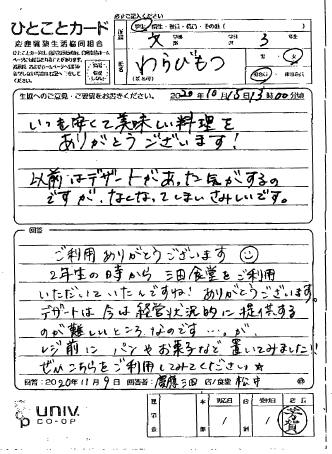 ひとことカード
慶應義塾生活協同組合
必ずご記入ください
文
3
わらびもつ
生協へのご意見・ご要望をお書きください。
2020年10月15日13時00分頃
いつも安くて美味しい料理を
ありがとうございます!
以前はデザートがあった気がするの
ですが、なくなってしまいさみしいです。
回答
ご利用ありがとうございます
2年生の時から三田食堂をご利用
いただいていたんですね!ありがとうございます。
デザートは今は経営状況的に提供する
のが難しいところなのです…。が、
レジ前にパンやお菓子など置いてみました!!
ぜひこちらをご利用してみてください☆
回答:2020年11月9日 回答者:慶應三田 店/食堂 松中
UNIV.
CO-OP